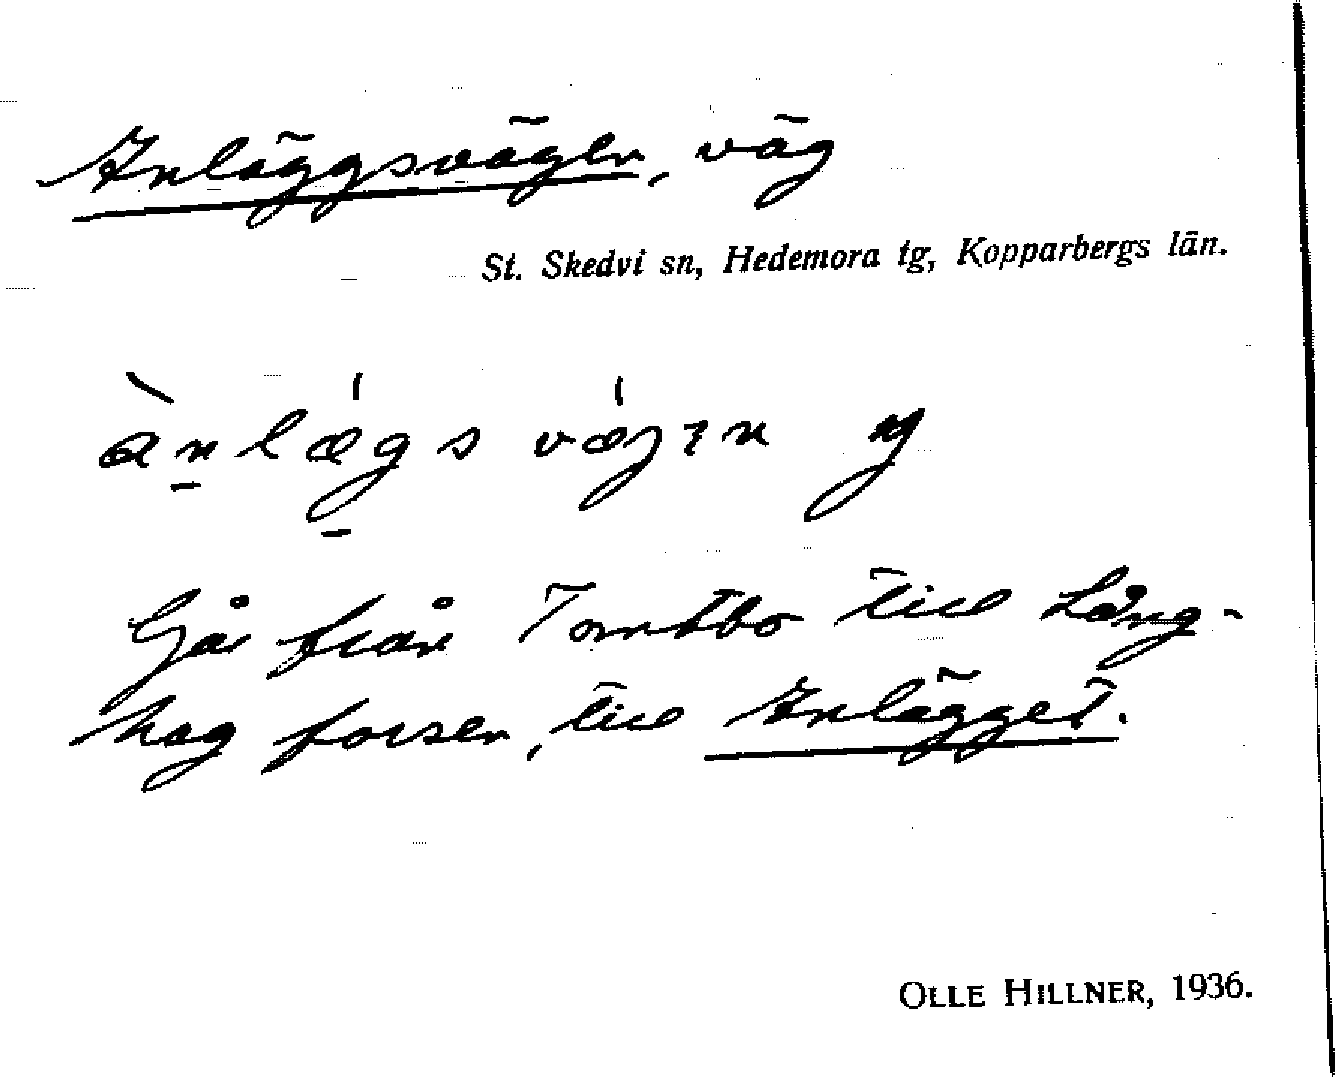 Anläggsvägen, väg
St. Skedvi sn, Hedemora tg, Kopparbergs län.
ànlæ̀gsvæ̀gɩn
Går från Tomtbo till Lång-
hag forsen, till Anlägget.
OLLE HILLNER, 1936.